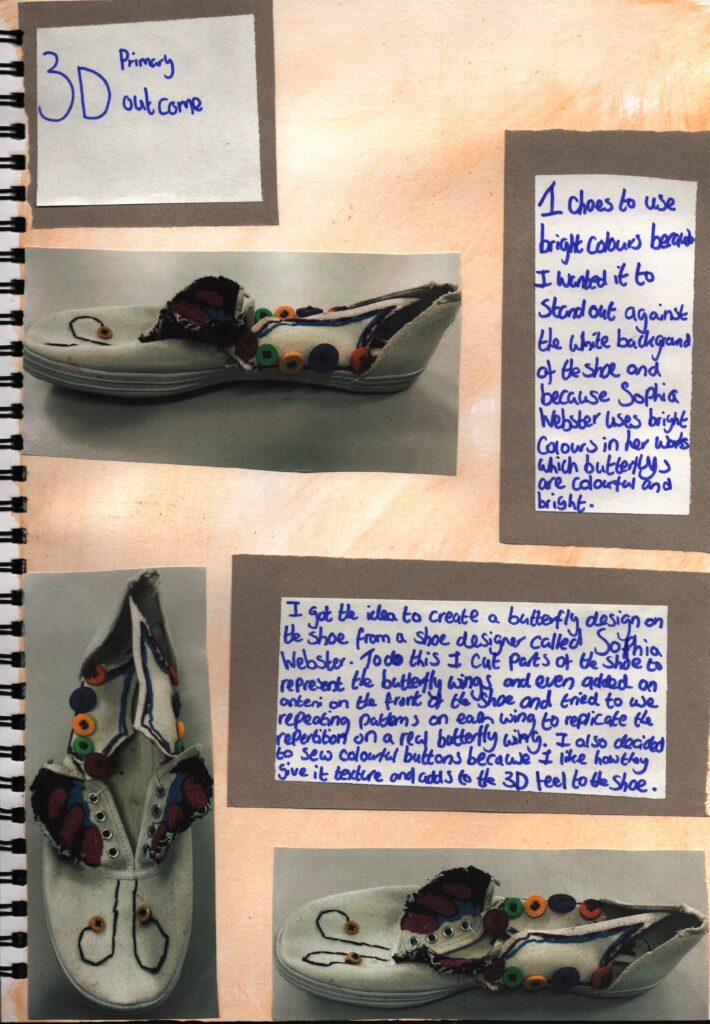 3D Primary
outcome
I choes to use
bright colours because
I wanted it to
Stand out against
the white backgrond
of the shoe and
because Sophia
Webster uses bright
colours in her work
which butterflys
are colourful and
bright.
I got the idea to create a butterfly design on
the shoe from a shoe designer called Sophia
Webster. To do this I cut parts of the shoe to
represent the butterfly wings and even added an
anteni on the front of the shoe and tried to use
repeating patterns on each wing to replicate the
repertition on a real butterfly wing. I also decided
to sew colourful buttons because I like how they
give it texture and adds to the 3D feel to the shoe.